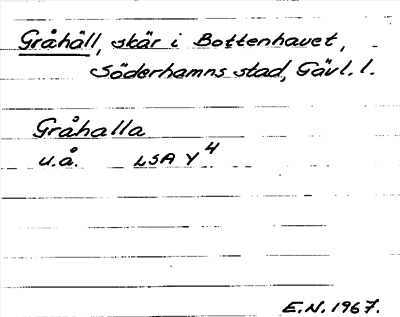 Gråhäll, skär i Bottenhavet,
Söderhamns stad, Gävl. l.
Gråhalla
u.å. LSA Y4
E.N. 1967.